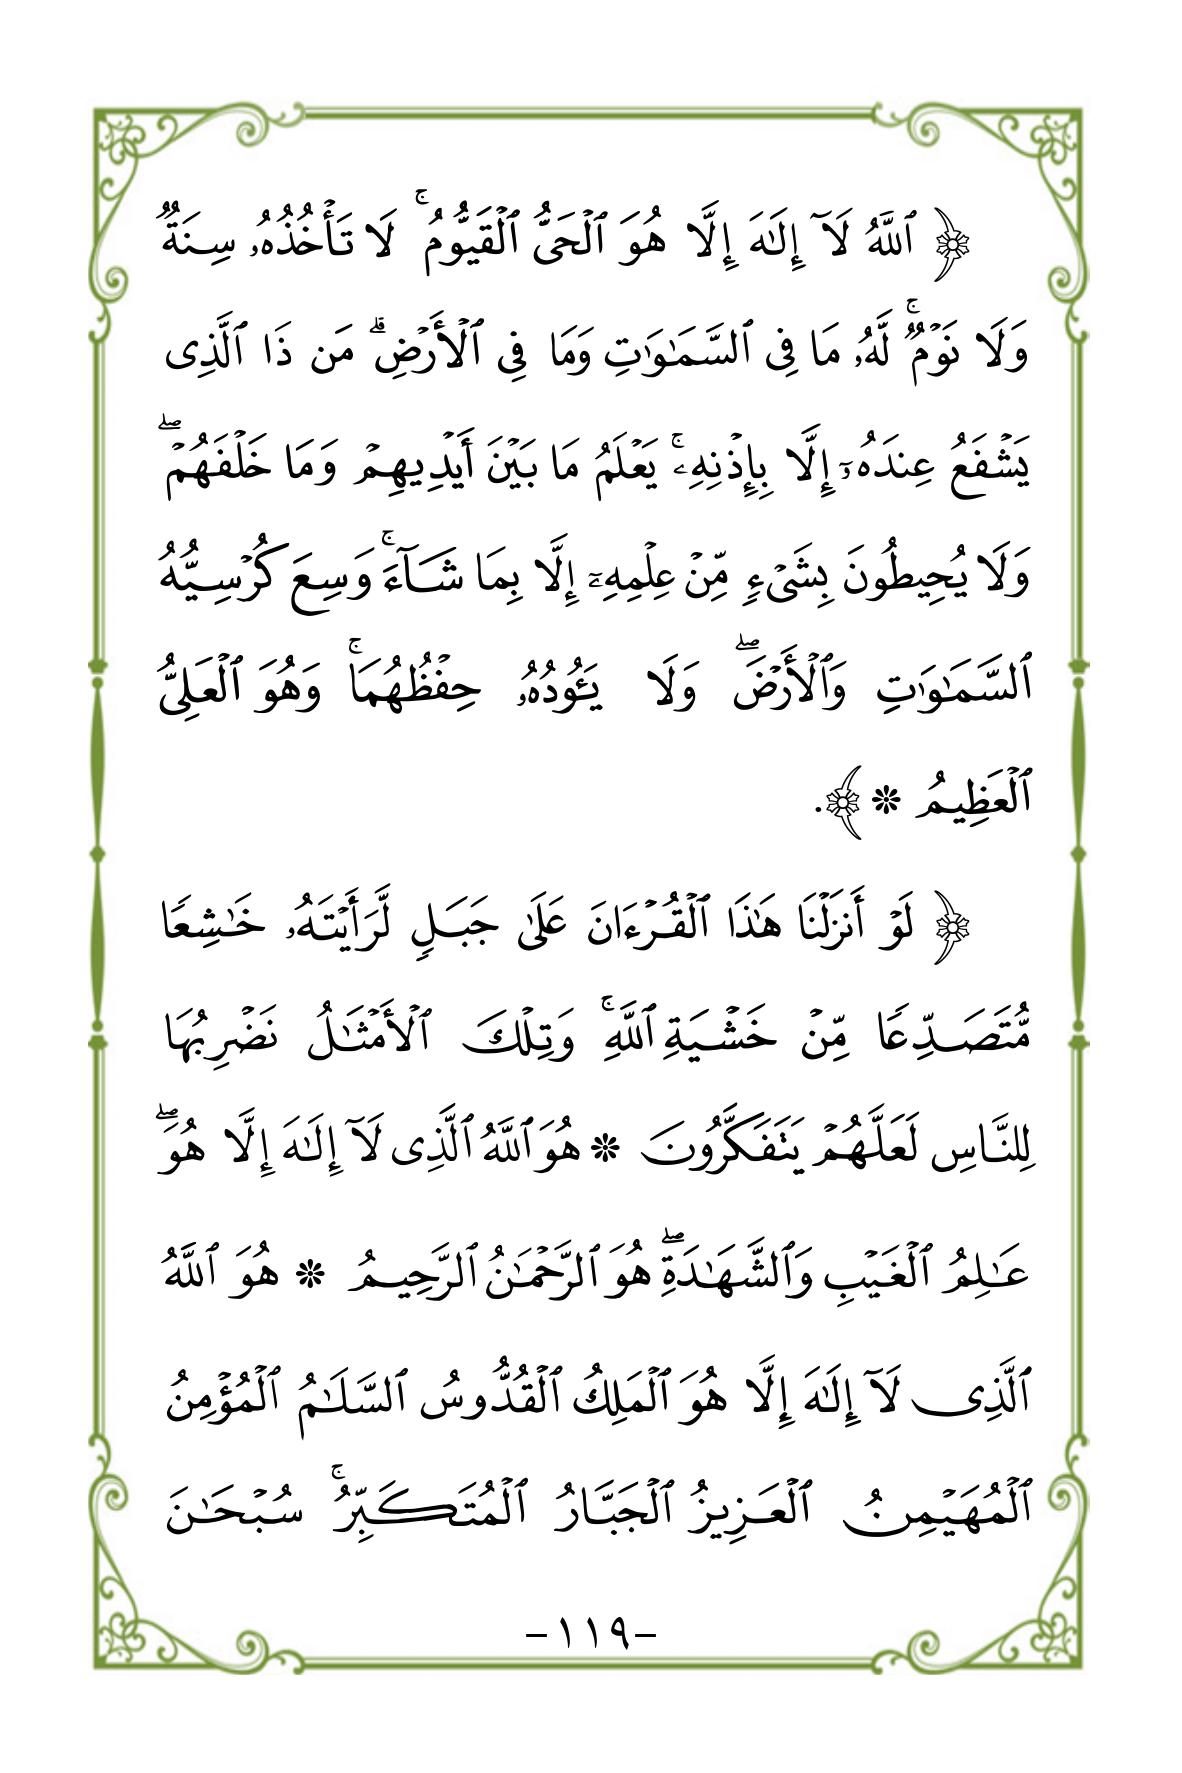 ﴿ ٱللَّهُ لَآ إِلَٰهَ إِلَّا هُوَ ٱلْحَىُّ ٱلْقَيُّومُ ۚ لَا تَأْخُذُهُۥ سِنَةٌ
وَلَا نَوْمٌ ۚ لَّهُۥ مَا فِى ٱلسَّمَٰوَٰتِ وَمَا فِى ٱلْأَرْضِ ۗ مَن ذَا ٱلَّذِى
يَشْفَعُ عِندَهُۥٓ إِلَّا بِإِذْنِهِۦ ۚ يَعْلَمُ مَا بَيْنَ أَيْدِيهِمْ وَمَا خَلْفَهُمْ ۖ
وَلَا يُحِيطُونَ بِشَىْءٍ مِّنْ عِلْمِهِۦٓ إِلَّا بِمَا شَآءَ ۚ وَسِعَ كُرْسِيُّهُ
ٱلسَّمَٰوَٰتِ وَٱلْأَرْضَ ۖ وَلَا يَـُٔودُهُۥ حِفْظُهُمَا ۚ وَهُوَ ٱلْعَلِىُّ
ٱلْعَظِيمُ ❇ ﴾.
﴿ لَوْ أَنزَلْنَا هَٰذَا ٱلْقُرْءَانَ عَلَىٰ جَبَلٍ لَّرَأَيْتَهُۥ خَٰشِعًا
مُّتَصَدِّعًا مِّنْ خَشْيَةِ ٱللَّهِ ۚ وَتِلْكَ ٱلْأَمْثَٰلُ نَضْرِبُهَا
لِلنَّاسِ لَعَلَّهُمْ يَتَفَكَّرُونَ ❇ هُوَ ٱللَّهُ ٱلَّذِى لَآ إِلَٰهَ إِلَّا هُوَ ۖ
عَٰلِمُ ٱلْغَيْبِ وَٱلشَّهَٰدَةِ ۖ هُوَ ٱلرَّحْمَٰنُ ٱلرَّحِيمُ ❇ هُوَ ٱللَّهُ
ٱلَّذِى لَآ إِلَٰهَ إِلَّا هُوَ ٱلْمَلِكُ ٱلْقُدُّوسُ ٱلسَّلَٰمُ ٱلْمُؤْمِنُ
ٱلْمُهَيْمِنُ ٱلْعَزِيزُ ٱلْجَبَّارُ ٱلْمُتَكَبِّرُ ۚ سُبْحَٰنَ
-١١٩-